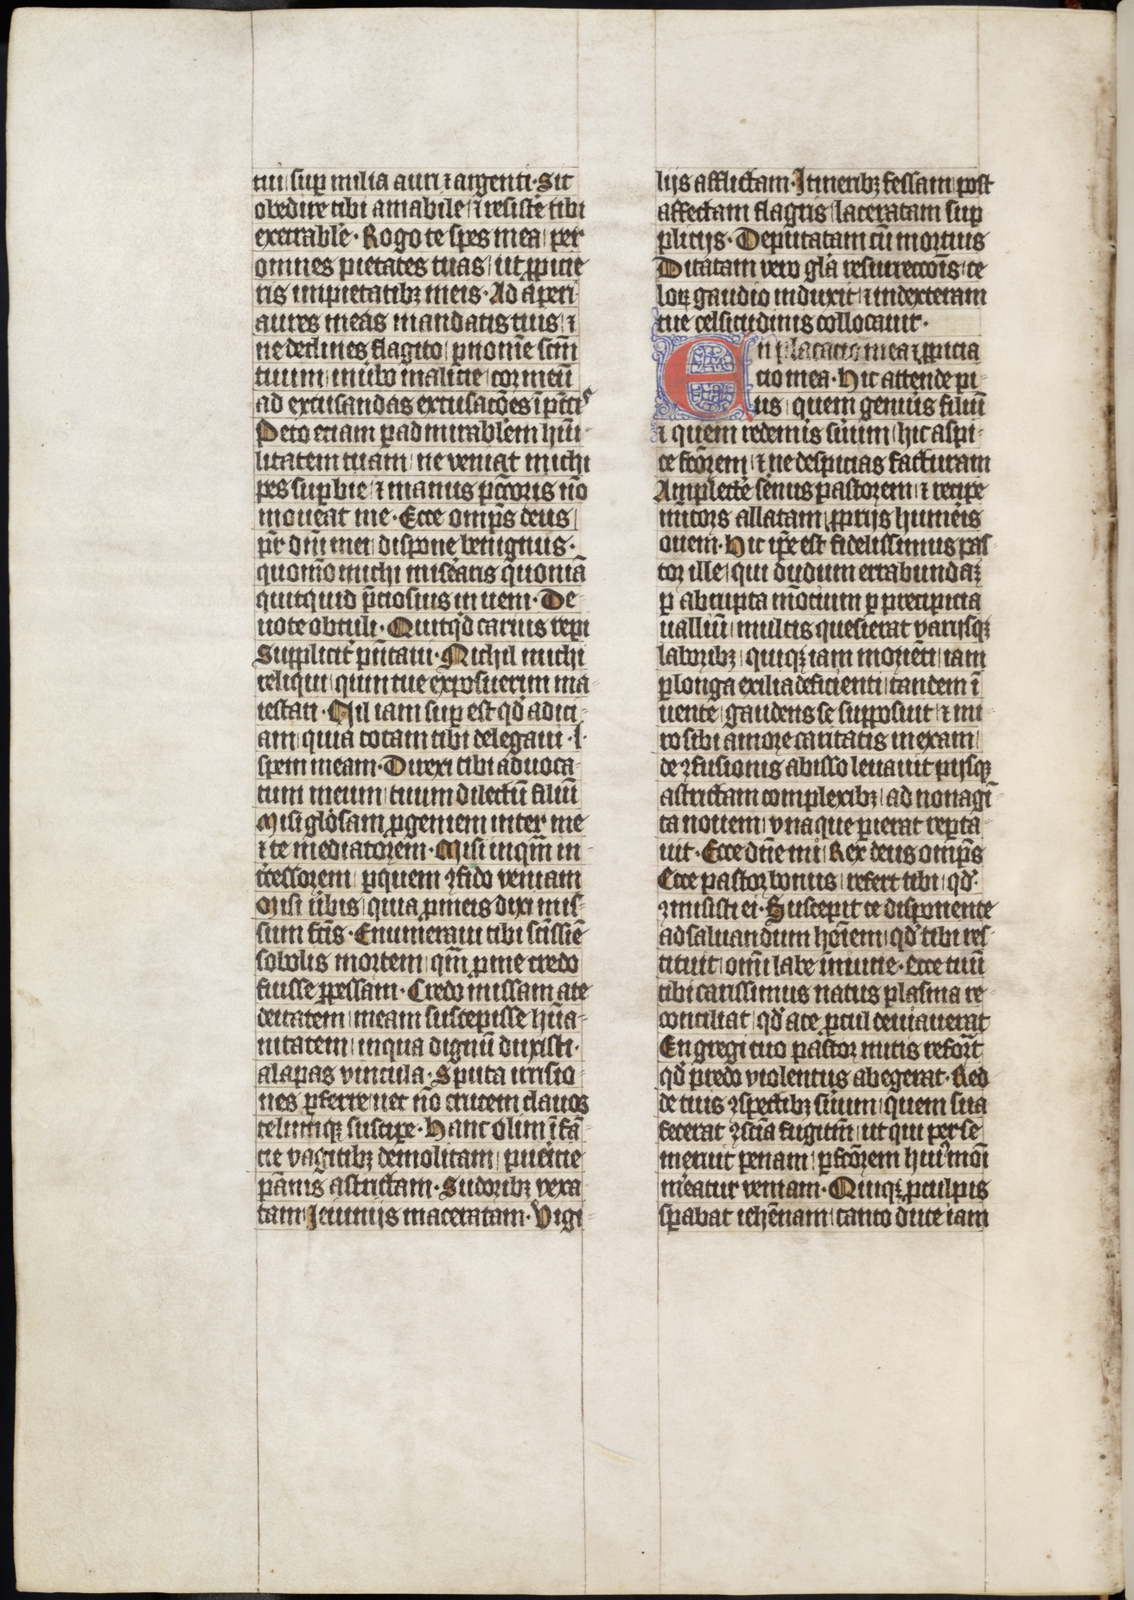 tui sup̱ milia auri ⁊ argenti· Sit
obedire tibi amabile ⁊ resist̄e tibi
execrabl̄e· Rogo te spes mea per
omnes pietates tuas ut ꝓpicie
ris impietatibꝫ meis· Ad aperi
aures meas mandatis tuis ⁊
ne declines flagito ꝑ nom̄e sc̄m
tuum in ūbo malicie cor meū
ad excusandas excusac̄oes ī pctīs
Peto etiam ꝑ admirabl̄em hūi
litatem tuam ne veniat michi
pes suꝑbie ⁊ manus pctōris nō
moueat me· Ecce omp̄s deus
pr̄ dn̄i mei dispone benignus·
quom̄o michi mis̄earis quoniā
quitquid p̄ciosius in ueni· De
uote obtuli· Quitqd̄ carius repi
Supplicit̄ pn̄taui· Nichil michi
reliqui quin tue exposuerim ma
iestati· Nil iam suꝑ est qd̄ adici
am quia totam tibi delegaui·
spem meam· Direxi tibi aduoca
tum meum tuum dilectū filiū
Misi glōsam ꝓgeniem inter me
⁊ te mediatorem· Misi inqm̄ in
t̄cessorem ꝑ quem ꝯfido veniam
Misi ūbis quia ꝓ meis dixi mis
sum fc̄is· Enumeraui tibi sc̄issie
sobolis mortem qm̄ ꝓ me credo
fuisse ꝑpessam· Credo missam a te
deitatem meam suscepisse hūa
nitatem in qua dignū duxisti·
alapas vincula· Sputa irrisio
nes ꝑferre nec nō crucem clauos
telumqꝫ suscipe· Hanc olim ī fā
cie vagitibꝫ demolitam pueicie
pānis astrictam· Sudoribꝫ vexa
tam Jeiunijs maceratam· Vigi
lijs afflictam· Itineribꝫ fessam post
affectam flagris laceratam sup
plicijs· Deputatam cū mortuis
Ditatam vero gl̄a resurreccōis ce
loꝝ gaudio induxit ⁊ in dexteram
tue celsitudinis collocauit·
En placatio mea ⁊ ꝓpicia
cio mea· Hic attende pi
us quem genuis filiū
⁊ quem redemis s̄uum hic aspi
ce fc̄orem ⁊ ne despicias facturam
Amplect̄e s̄enus pastorem ⁊ recipe
mīcors allatam ꝓprijs humēis
ouem· Hic ip̄e est fidelissimus pas
tor ille qui dudum errabundā
ꝑ abrupta mōcium ꝑ precipicia
ualliū multis quesierat varijsqꝫ
laboribꝫ quiqꝫ iam moriēti iam
ꝑ longa exilia deficienti tandem ī
uente gaudens se supposuit ⁊ mi
ro sibi amore caritatis in exam
de ꝯfusionis abisso leuauit pijsqꝫ
astrictam complexibꝫ ad nonagī
ta nouem vna que ꝑierat reꝑta
uit· Ecce dn̄e mi Rex deus omp̄s
Ecce pastor bonus refert tibi qd̄·
ꝯmisisti ei· Suscepit te disponente
ad saluandum hōiem qd̄ tibi res
tituit omī labe īmune· Ecce tuū
tibi carissimus natus plasma re
conciliat qd̄ a te ꝓcul deuiauerat
En gregi tuo pastor mitis refort
qd̄ predo violentus abegerat· Red
de tuis ꝯspectibꝫ s̄uum quem sua
fecerat ꝯsc̄ia fugitm̄ ut qui per se
meruit penam ꝑ fc̄orem hui᷒moī
m̄eatur veniam· Quiqꝫ ꝓ culpis
sꝑabat iehēnam tanto duce iam